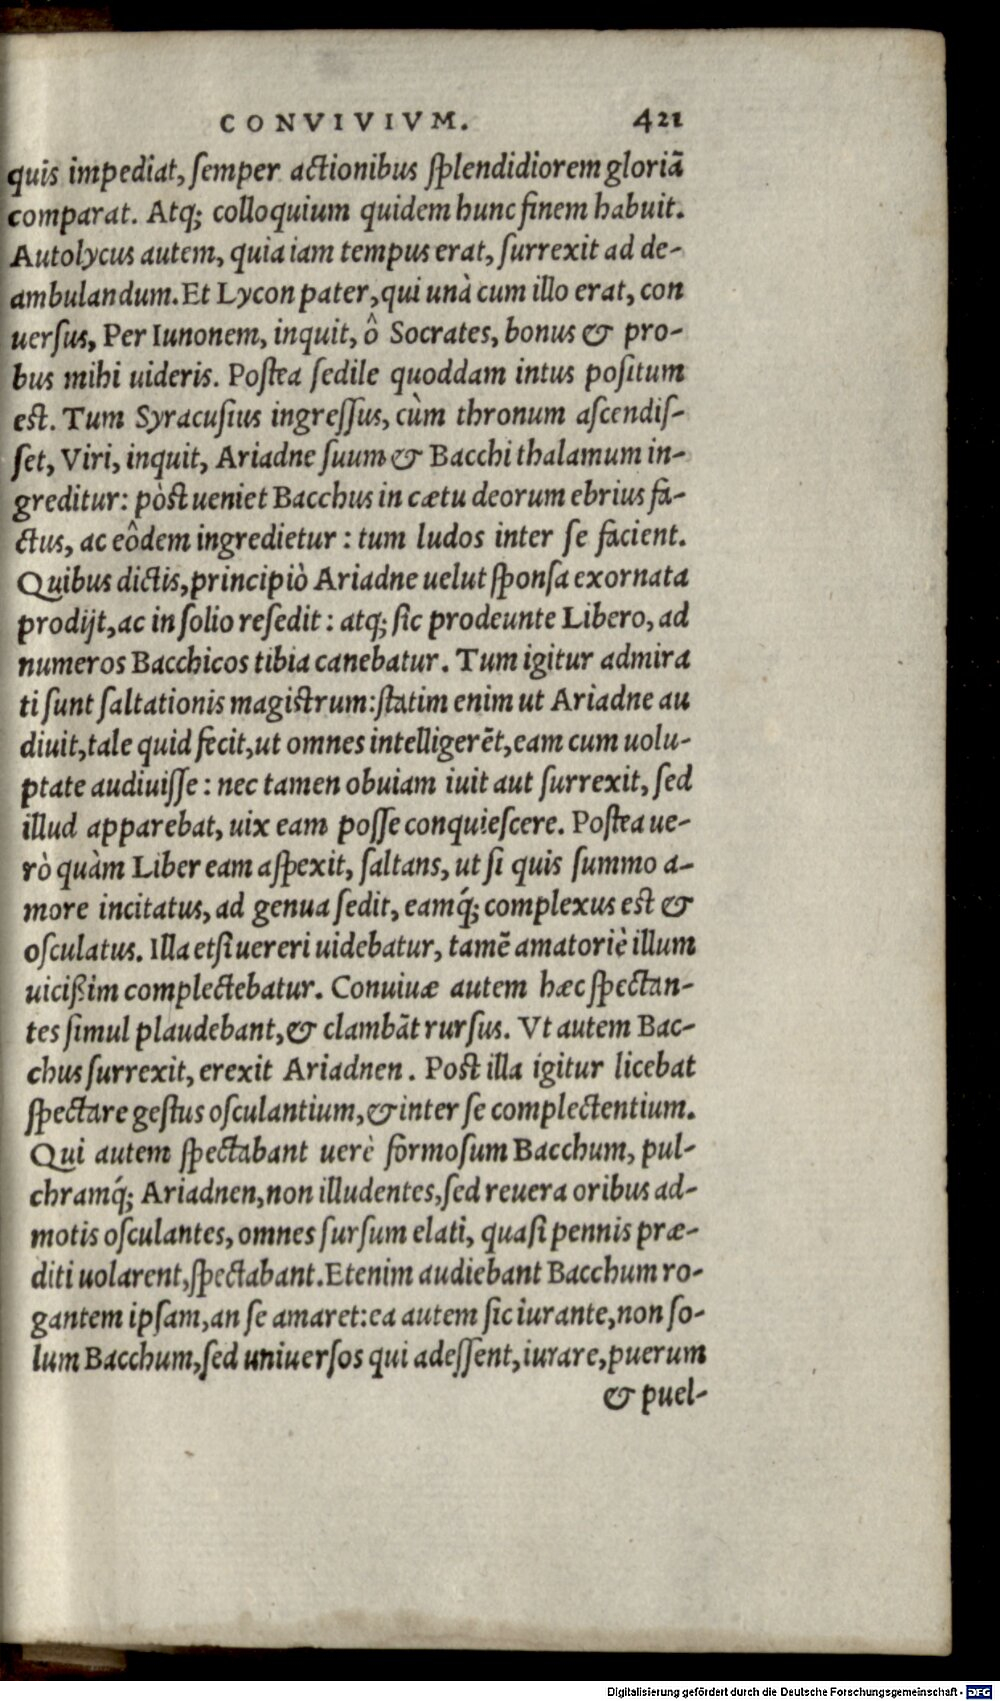 CONVIVIVM. 421
quis impediat, semper actionibus splendidiorem gloriã
comparat. Atq; colloquium quidem hunc finem habuit.
Autolycus autem, quia iam tempus erat, surrexit ad de-
ambulandum. Et Lycon pater, qui unà cum illo erat, con
uersus, Per Iunonem, inquit, ô Socrates, bonus & pro-
bus mihi uideris. Postea sedile quoddam intus positum
est. Tum Syracusius ingressus, cùm thronum ascendis-
set, Viri, inquit, Ariadne suum & Bacchi thalamum in-
greditur: pòst ueniet Bacchus in cætu deorum ebrius fa-
ctus, ac eôdem ingredietur: tum ludos inter se facient.
Quibus dictis, principiò Ariadne uelut sponsa exornata
prodijt, ac in solio resedit: atq; sic prodeunte Libero, ad
numeros Bacchicos tibia canebatur. Tum igitur admira
ti sunt saltationis magistrum: statim enim ut Ariadne au
diuit, tale quid fecit, ut omnes intelligerẽt, eam cum uolu-
ptate audiuisse: nec tamen obuiam iuit aut surrexit, sed
illud apparebat, uix eam posse conquiescere. Postea ue-
rò quàm Liber eam aspexit, saltans, ut si quis summo a-
more incitatus, ad genua sedit, eamq́; complexus est &
osculatus. Illa etsi uereri uidebatur, tamẽ amatoriè illum
uicißim complectebatur. Conuiuæ autem hæc spectan-
tes simul plaudebant, & clambãt rursus. Vt autem Bac-
chus surrexit, erexit Ariadnen. Post illa igitur licebat
spectare gestus osculantium, & inter se complectentium.
Qui autem spectabant uerè formosum Bacchum, pul-
chramq́; Ariadnen, non illudentes, sed reuera oribus ad-
motis osculantes, omnes sursum elati, quasi pennis præ-
diti uolarent, spectabant. Etenim audiebant Bacchum ro-
gantem ipsam, an se amaret: ea autem sic iurante, non so-
lum Bacchum, sed uniuersos qui adessent, iurare, puerum
& puel-
Digitalisierung gefördert durch die Deutsche Forschungsgemeinschaft - DFG